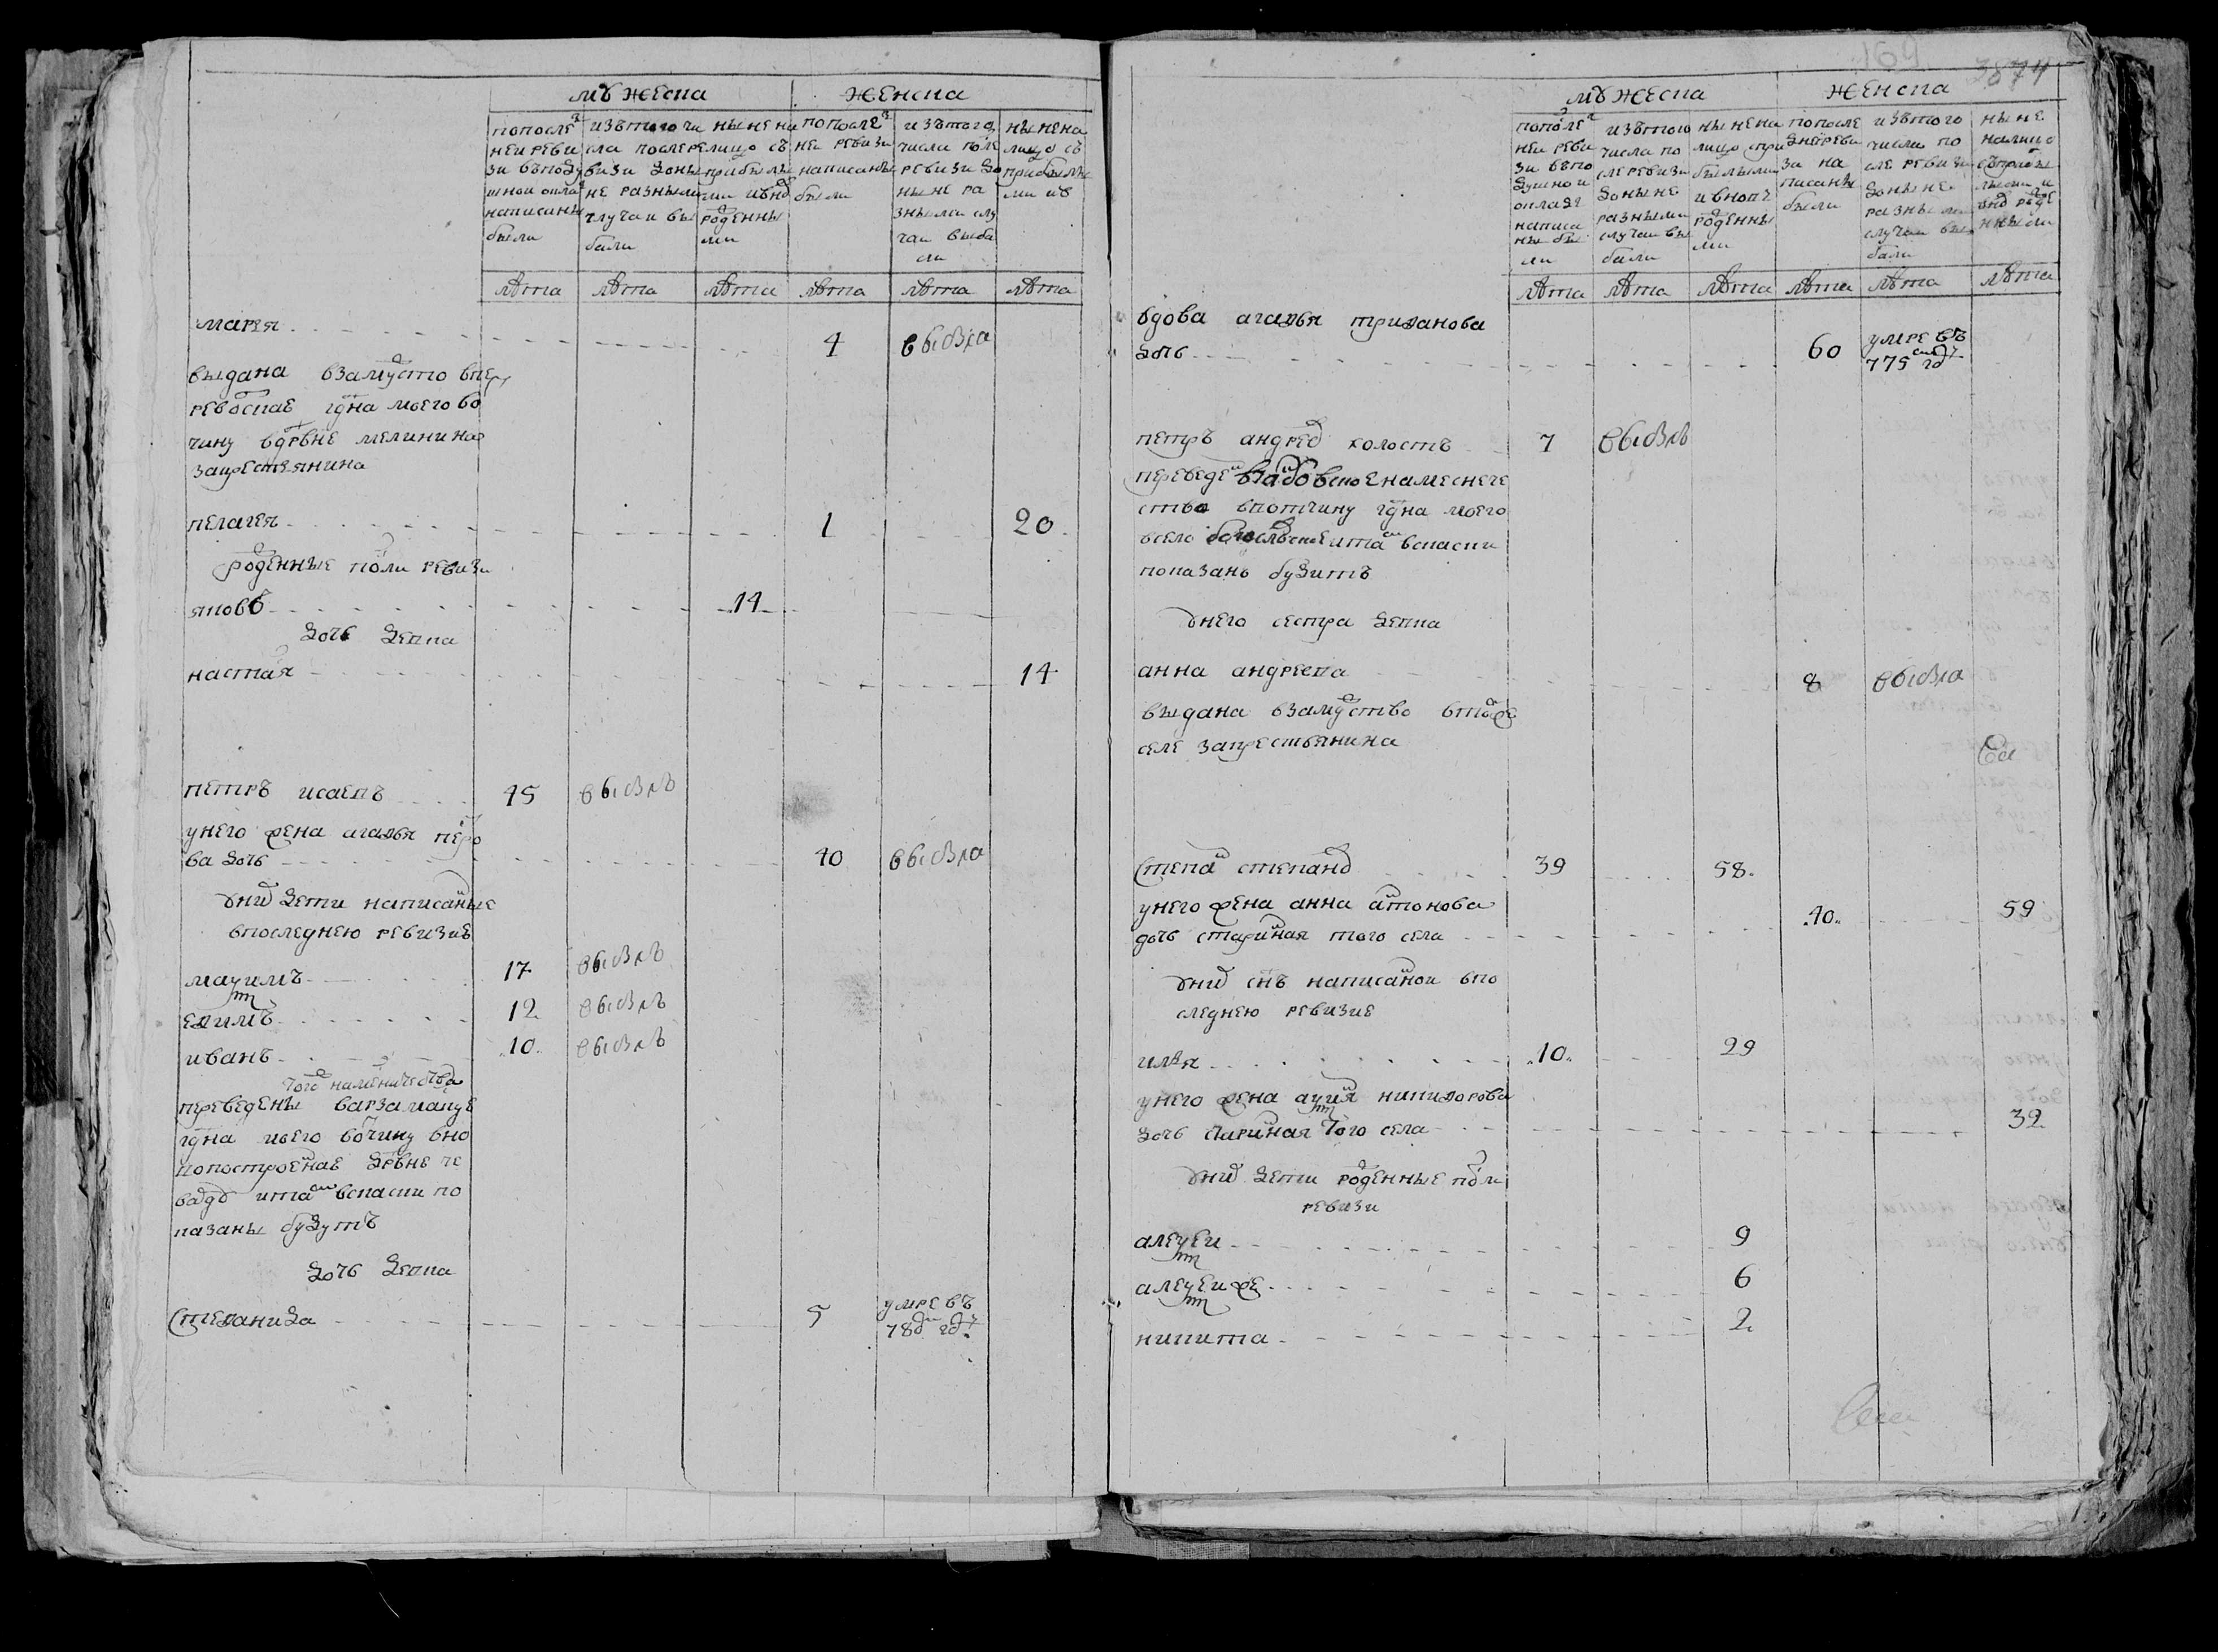 мужеска женска
попосле з
неи реви
зи въподу
шнои оклад
написаны
были
изътого чи
сла послере
визи доны
не разными
случаи вы
были
ныне на
лицо съ
прибылы
ми ивнов
роденны
ми
попосле з
неи ревизи
написаны
были
изътого
числа после
ревизи до
ныне ра
зными слу
чаи выбы
ли
нынена
лицо съ
прибылы
ми ив
лѣта лѣта лѣта лѣта лѣта лѣта
марья 4 выбыла
выдана взамуство впер
ревоскае гдна моего во
чину вдрвне мелинина
закрестянина
пелагея 1 20
роденные посли ревизи
яковъ 14
дочь девка
настася 14
петръ исаевъ 45 выбылъ
унего жена агафья петро
ва дочь 40 выбыла
уних дети написаные
впоследнею ревизие
маѯимъ 17 выбылъ
ефимъ 12 выбылъ
иванъ 10 выбылъ
того намесничества
переведены варзамаску
гдна моего вочину вно
попостроеная дрвне че
и там вскаски по
казаны будутъ
дочь девка
степанида 5 умре въ
78 год
159
3874
мужеска женска
попосле
неи реви
зи въпо
душнои
окладе
написа
ны бы
ли
изътого
числа по
слеревизи
доныне
разными
случаи вы
были
нынена
лицо спри
былыми
ивновъ
роденны
ми
попосле
днеиреви
зи на
писаны
были
изътого
числа по
сле ревизи
доныне
разными
случаи вы
были
ныне
налицо
съприбы
лыми и
внов роде
нными
лѣта лѣта лѣта лѣта лѣта лѣта
вдова агафья трифанова
дочь 60 умре въ
775 год
петръ андреев холостъ 7 выбылъ
переведен намесниче
ство ввотчину гдна моего
всело итам вскаски
показанъ будитъ
унего сестра девка
анна андреева 8 выбыла
выдана взамуство втомже
селе закрестьянина
степан степанов 39 58
унего жена анна антонова
дочь старинная того села 40 59
уних снъ написаной впо
следнею ревизие
илья 10 29
унего жена аѯиня никифорова
дочь старинная того села 32
уних дети роденные посли
ревизи
алеѯеи 9
алеѯеи же 6
никита 2